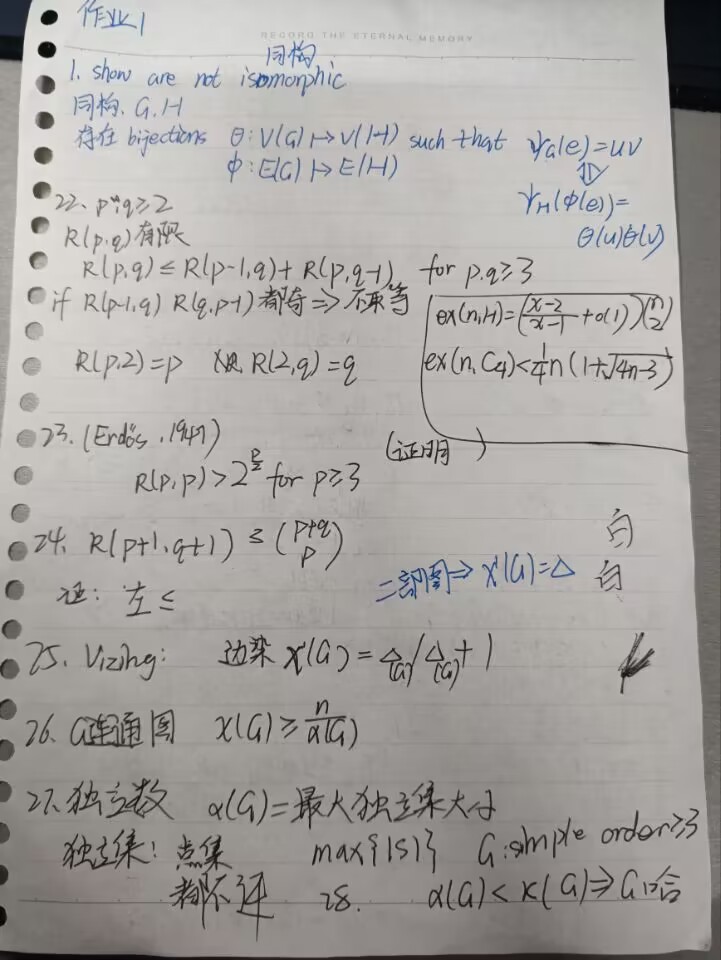 作业1
RECORD THE ETERNAL MEMORY
同构
1. show are not isomorphic
同构. G.H
存在 bijections θ: V(G) ↦ V(H) such that ψG(e)=uv
Φ: E(G) ↦ E(H) ⇕
ψH(Φ(e))=
θ(u)θ(v)
22. p,q≥2
R(p,q)有限
R(p,q) ≤ R(p-1,q) + R(p,q-1) for p.q≥3
if R(p-1,q) R(q,p-1) 都奇 ⇒ 不取等
ex(n,H)=(\frac{x-2}{x-1}+o(1))\binom{n}{2}
R(p,2)=p R(2,q)=q
ex(n,C4)<\frac{1}{4}n(1+\sqrt{4n-3})
23. (Erdős, 1947)
(证明 )
R(p,p) > 2^{\frac{p}{2}} for p≥3
24. R(p+1,q+1) ≤ \binom{p+q}{p}
白
二部图 ⇒ χ'(G)=Δ
白
证: 左≤
25. Vizing: 边染 χ'(G) = Δ(G)/Δ(G)+1
26. G连通图 χ(G) ≥ \frac{n}{α(G)}
27. 独立数 α(G)=最大独立集大小
独立集: 点集 max{|S|} G: simple order≥3
都不连 28. α(G) < κ(G) ⇒ G哈